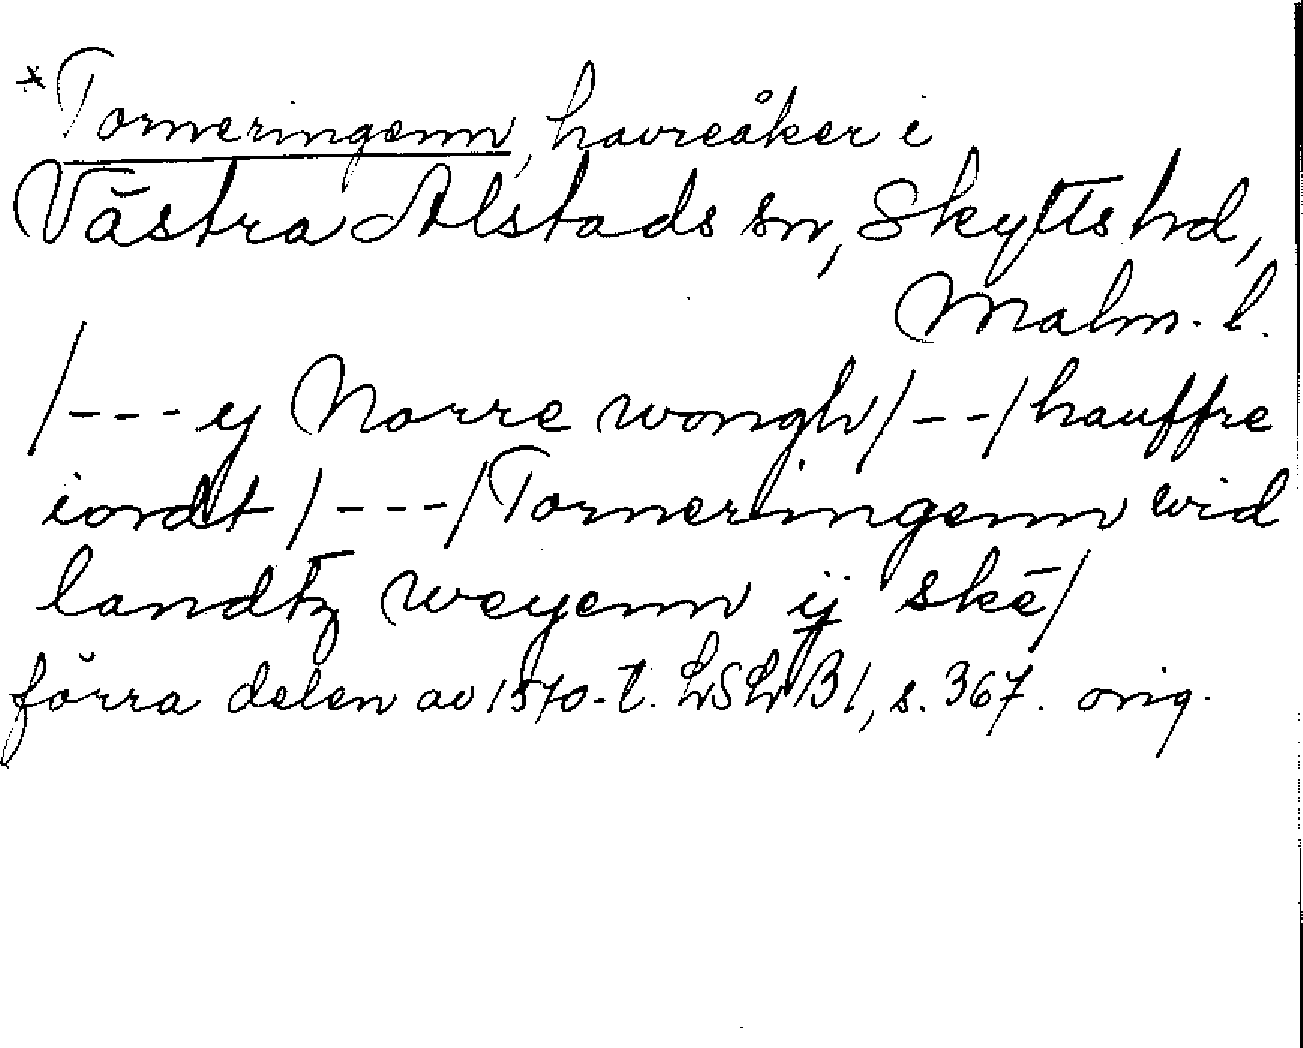 *Torneringenn, havreåker i
Västra Alstads sn, Skytts hd,
Malm. l.
/--- y Norre wongh/--/hauffre
iordt/---/Torneringenn wid
landtz weyenn ij skē/
förra delen av 1570-t. LSLB1, s. 367. orig.